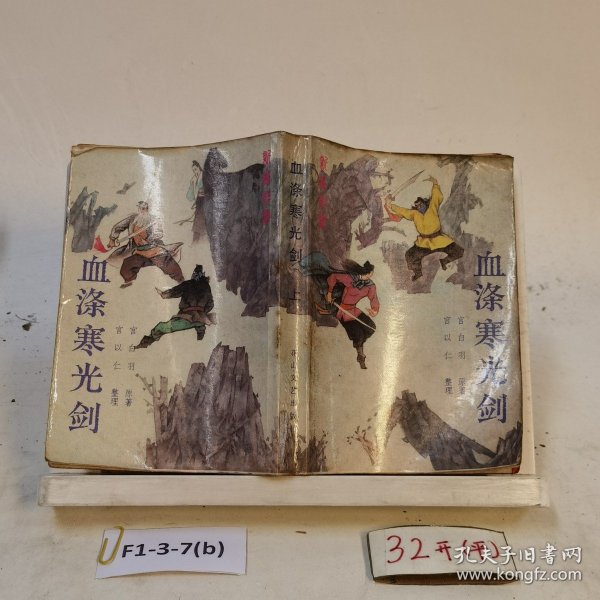 血涤寒光剑
宫白羽 原著
宫以仁 整理
血涤寒光剑 上
血涤寒光剑
宫白羽 原著
宫以仁 整理
F1-3-7(b)
32开(平)
孔夫子旧书网
www.kongfz.com